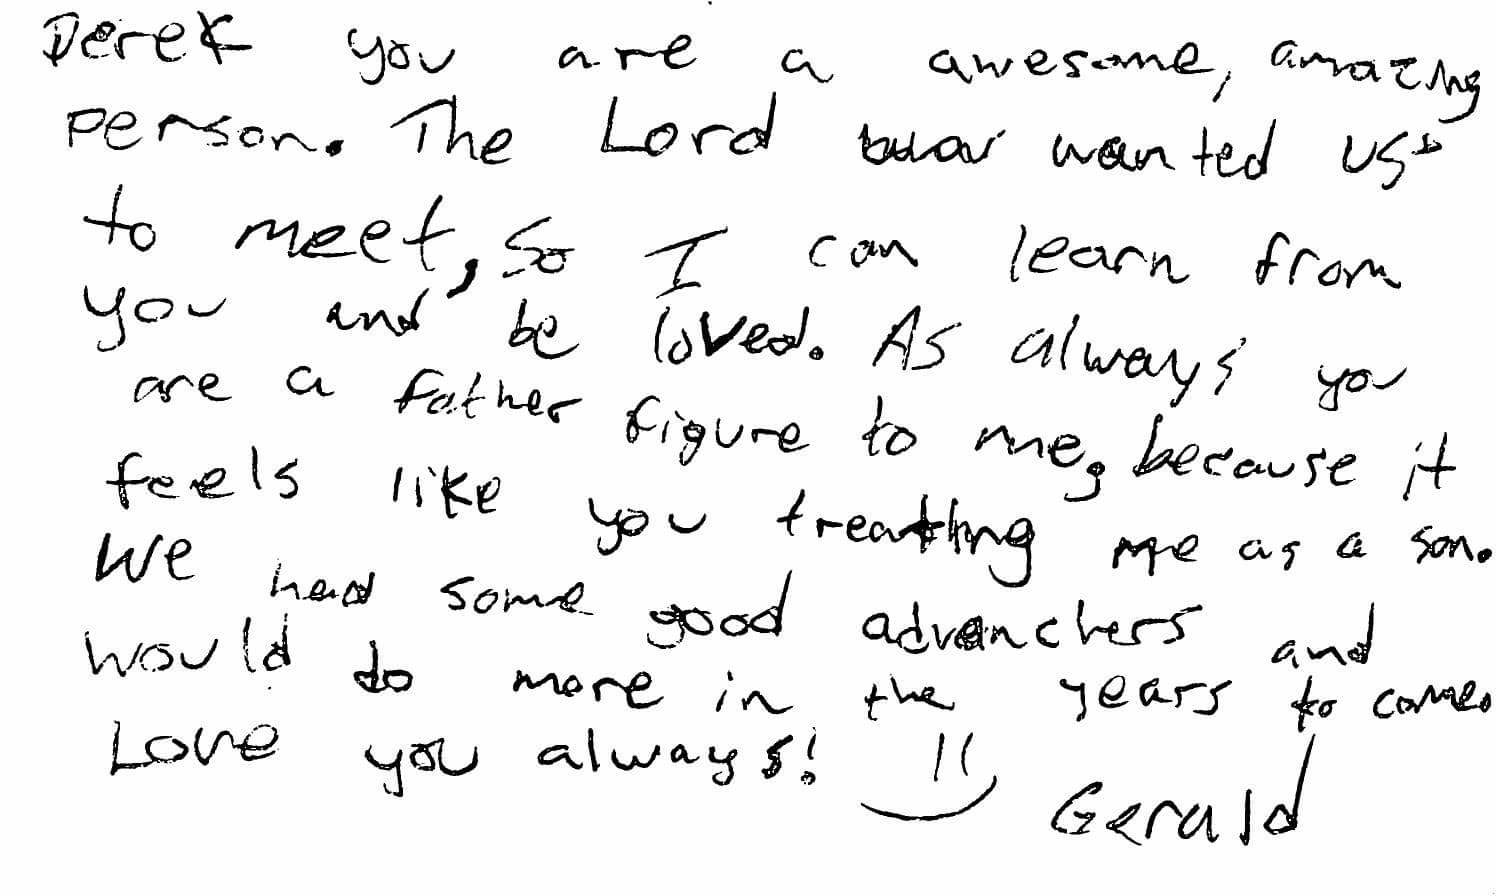 Derek you are a awesome, amazing
person. The Lord wanted us
to meet, so I can learn from
you and be loved. As always you
are a father figure to me, because it
feels like you treating me as a son.
We had some good advanchers and
would do more in the years to come.
Love you always! Gerald